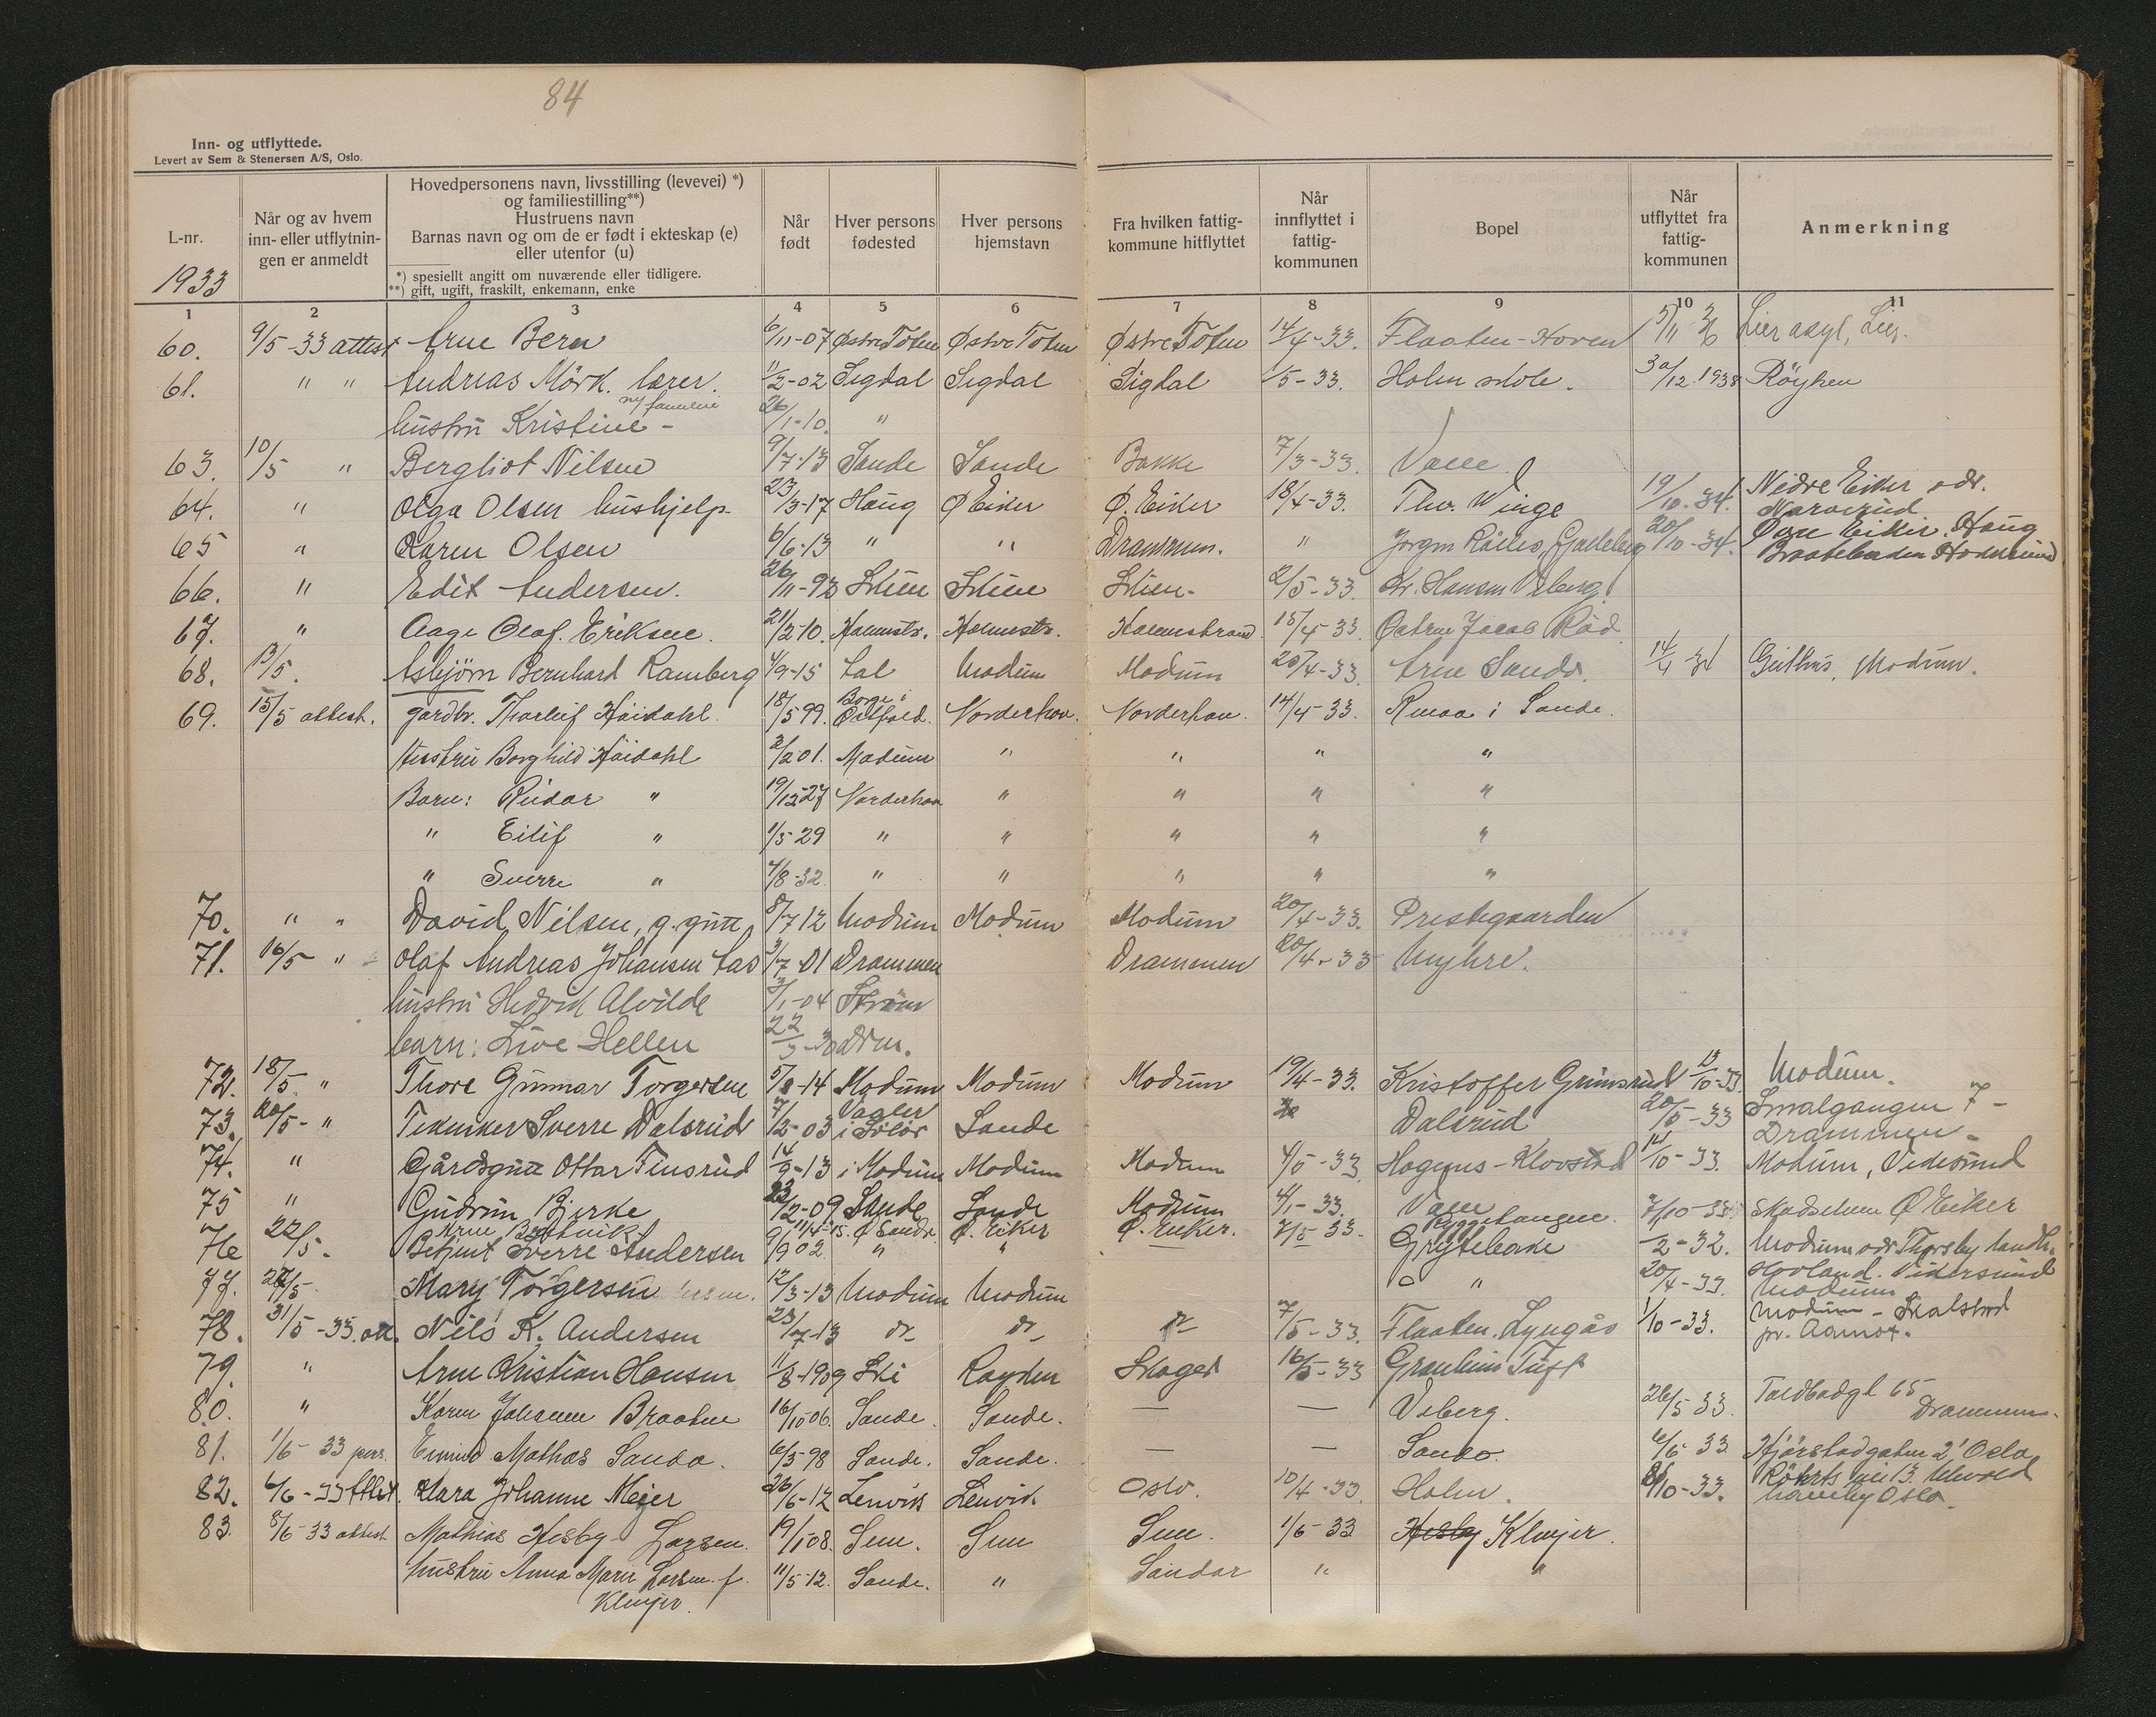 84
Inn- og utflyttede.
Levert av Sem & Stenersen A/S, Oslo.
L-nr.
1933
Når og av hvem inn- eller utflytnin-gen er anmeldt
Hovedpersonens navn, livsstilling (levevei) *) og familiestilling**)
Hustruens navn
Barnas navn og om de er født i ekteskap (e) eller utenfor (u)
*) spesiellt angitt om nuværende eller tidligere.
**) gift, ugift, fraskilt, enkemann, enke
Når født
Hver persons fødested
Hver persons hjemstavn
Fra hvilken fattig-kommune hitflyttet
Når innflyttet i fattig-kommunen
Bopel
Når utflyttet fra fattig-kommunen
Anmerkning
1 2 3 4 5 6 7 8 9 10 11
60. 9/5-33 attest Arne Bern 6/11-07 Østre Toten Østre Toten Østre Toten 14/4-33. Flaaten-Hoven 5/11 36 Lier asyl, Lier.
61. " " Andreas Mörk. lærer. 1/2-02 Sigdal Sigdal Sigdal 1/5-33. Holm skole. 30/12.1938 Röyken
hustru Kristine - 26/1-10. "
63. 10/5 " Bergliot Nilsen 9/7-13 Sande Sande Bakke 7/3-33. Valle
64. " Olga Olsen hushjelp 23/3-17 Haug Ø Eiker Ø. Eiker 18/4-33. Thv. Winge 19/10.34. Nedre Eiker adr.
65 " Karen Olsen 6/6-13 " " Drammen. " 20/10-34. Øvre Eiker. Haug
66. " Edit Andersen. 26/11-93 Skien Skien Skien- 2/5-33. Kr. Hansen Veberg
67. " Aage Olaf. Eriksen. 21/2-10. Holmestr. Holmestr. Holmestrand 18/4-33 Østre Jacob Röd
68. 13/5. Asbjörn Bernhard Ramberg 4/9-15 Modum Modum 20/4-33. Arne Sande. 14/4-34 Geithus, Modum.
69. 15/5 attest. gardbr. Thorleif Höidahl 18/5 99. Borge i Østfold. Norderhov. Norderhov. 14/4-33. i Sande.
Hustru Borghild Höidahl 2/2 01. Modum " " " "
Barn: Reidar " 19/12-27 Norderhov " " " "
" Eilif " 1/5-29 " " " " "
" Sverre " 4/8-32. " " " " "
70. " " David Nilsen, g. gutt 8/7 12 Modum Modum Modum 20/4-33. Prestegaarden
71. 16/5- " Olaf Andreas Johansen 3/7-01 Drammen Drammen 20/4-33 Myhre.
hustru Hedvik Alvilde 3/1-04 Ström
barn: Live Hellen 22/3-30 Drm.
72. 18/5. " Thore Gunnar Torgersen 5/8-14 Modum Modum Modum 19/4-33. Kristoffer Grimsrud 13/10-33. Modum.
73. 20/5- " Tekniker Sverre Dalsrud 7/2-03 Vaaler i Solör Sande Dalsrud 20/5-33 Smalgangen 7 - Drammen -
74. " Gårdsgutt Ottar Finsrud 14/9-13 i Modum Modum Modum 4/5-33. Hagens-Klovstad 14/10-33. Modum, Vikersund
75 " Gudrun Bjerke 23/2-09 Sande Sande Modum 4/1-33. Valle 7/10-33 Skadselven Ø Eiker
76 22/5. Betjent Sverre Andersen 9/9 02 " " Ø. Eiker. 7/5 33. Grytebakke 1/2-32. Modum adr Thorsby Landh.
77. 27/5 Mary Torgersen 12/3-13 Modum Modum " 20/4-33. Vikersund Modum
78. 31/5-33. att. Nils K. Andersen 23/7-13 do do do 7/5-33. Flaaten. Lyngås 1/10-33. Modum - Skalstad pr. Aamot.
79. " Arne Kristian Hansen 11/8-1909 Ski Royken Skoger 16/5-33 Tuft
80. " Karen Johanne Braaten 16/10 06. Sande. Sande. — — Veberg. 26/5 33. Toldbodgt 65 Drammen.
81. 1/6-33 pers. Mathias Sando. 6/3-98 Sande. Sande. — — Sando. 6/6 33 Oslo
82. 6/6-33 Attest. Klara Johanne Meyer 26/6-12 Lenvik Lenvik Oslo. 10/4-33 Holm. 8/10-33. 13. Ullevold Haveby Oslo.
83. 8/6-33 attest. Mathias Hesby Larsen. 19/1 08. Sem. Sem Sem. 1/6-33 Hesby Klevjer.
hustru Anna Marie Larsen f. 11/5-12. Sande. " Sandar " "
Klevjer.